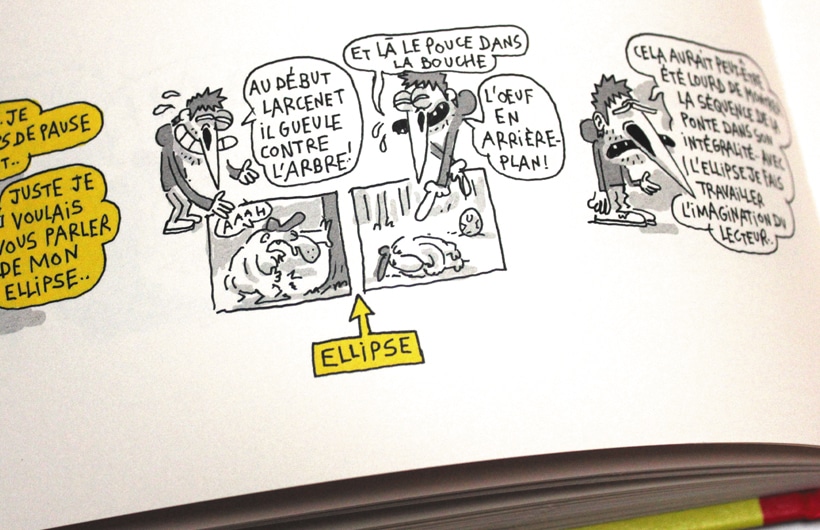 JE
S DE PAUSE
T..
JUSTE JE
VOULAIS
VOUS PARLER
DE MON
ELLIPSE..
AU DÉBUT
LARCENET
IL GUEULE
CONTRE
L'ARBRE!
ET LÀ LE POUCE DANS
LA BOUCHE
L'ŒUF
EN
ARRIÈRE-
PLAN!
AAAH
ELLIPSE
CELA AURAIT PEUT-ÊTRE
ÉTÉ LOURD DE MONTRER
LA SÉQUENCE DE LA
PONTE DANS SON
INTÉGRALITÉ. AVEC
L'ELLIPSE JE FAIS
TRAVAILLER
L'IMAGINATION DU
LECTEUR..